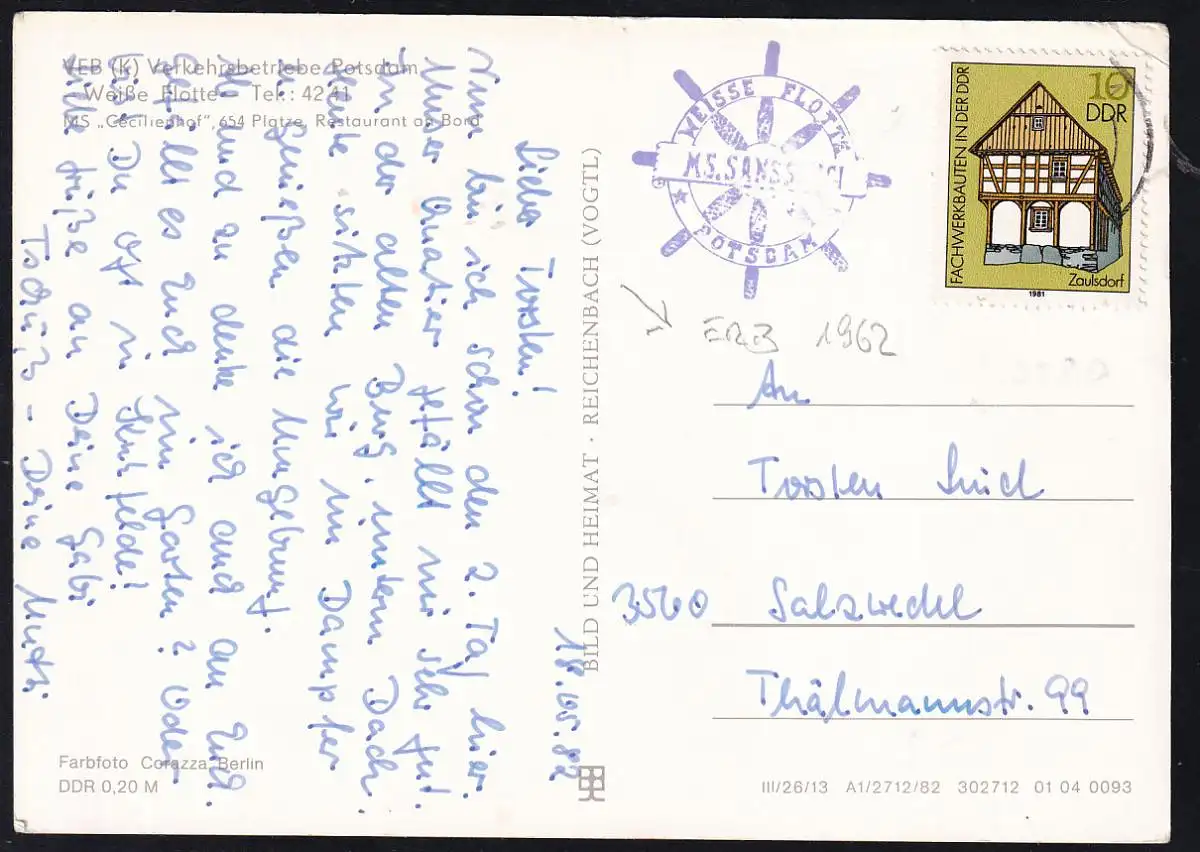 VEB (K) Verkehrsbetriebe Potsdam
- Weiße Flotte - Tel.: 42 41
MS „Cecilienhof", 654 Plätze, Restaurant an Bord
18.05.82
Lieber Torsten!
Nun bin ich schon den 2. Tag hier.
Unser Quatier gefällt mir sehr gut.
In der alten Burg, unterm Dach.
Heute sitzen wir im Dampfer
u. genießen die Umgebung.
Ab und zu denke ich auch an Euch.
Gefällt es Euch im Garten? Oder
bist Du oft in
Viele Grüße an Deine Gabi
Tschüß - Deine Mutti
Farbfoto Corazza, Berlin
DDR 0,20 M
BILD UND HEIMAT · REICHENBACH (VOGTL)
WEISSE FLOTTE
M.S. SANSSOUCI
POTSDAM
FACHWERKBAUTEN IN DER DDR
10
DDR
1981
Zaulsdorf
1981
ERB 1962
An
Torsten
3560 Salzwedel
Thälmannstr. 99
III/26/13 A1/2712/82 302712 01 04 0093